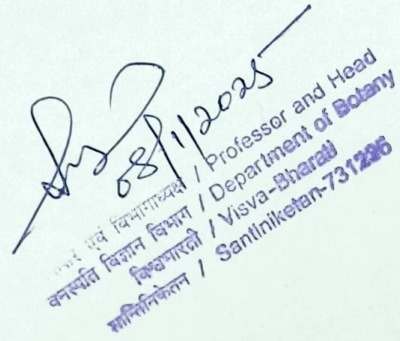 08/1/2025
एवं विभागाध्यक्ष / Professor and Head
वनस्पति विज्ञान विभाग / Department of Botany
विश्वभारती / Visva-Bharati
शान्तिनिकेतन / Santiniketan-731235